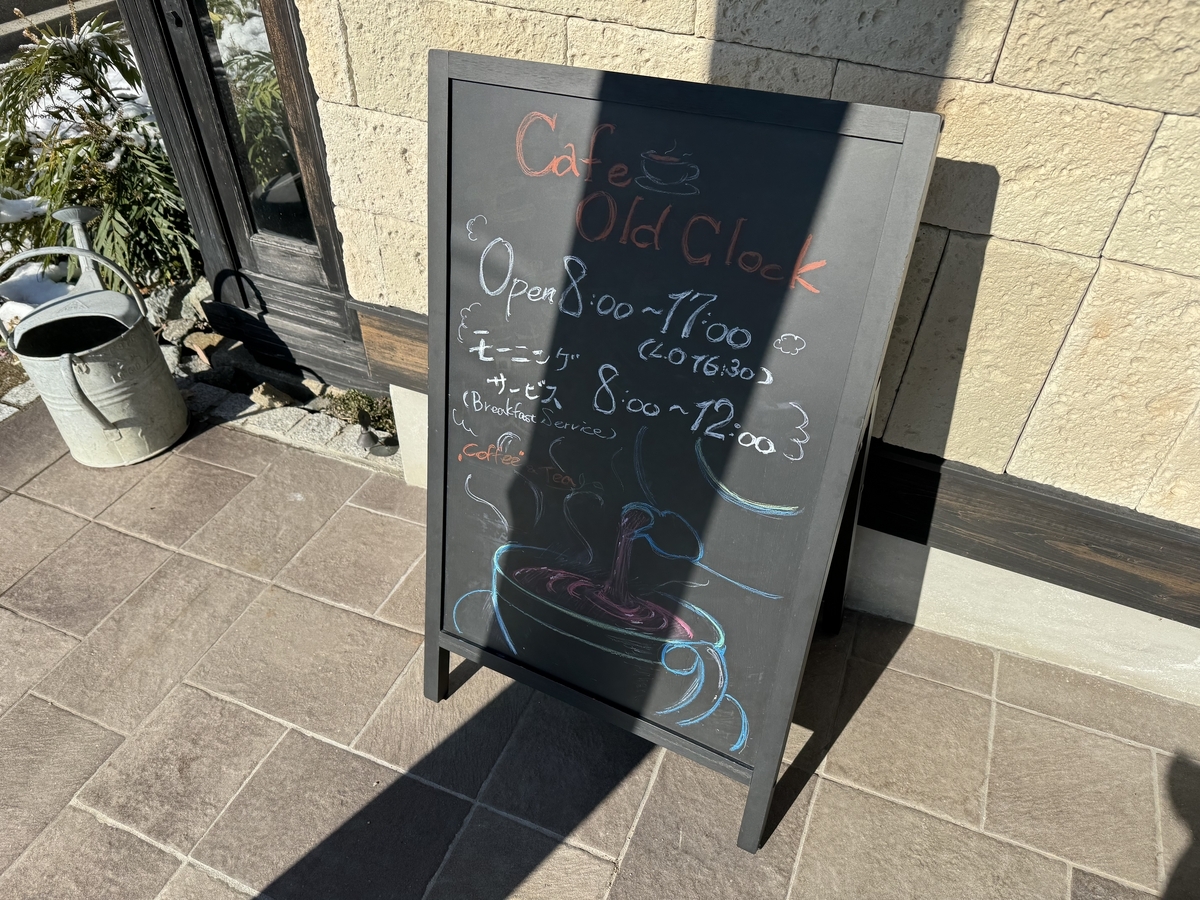 Cafe
Old Clock
Open 8:00~17:00
(L.O 16:30)
モーニング
サービス 8:00~12:00
(Breakfast Service)
"Coffee" & Tea